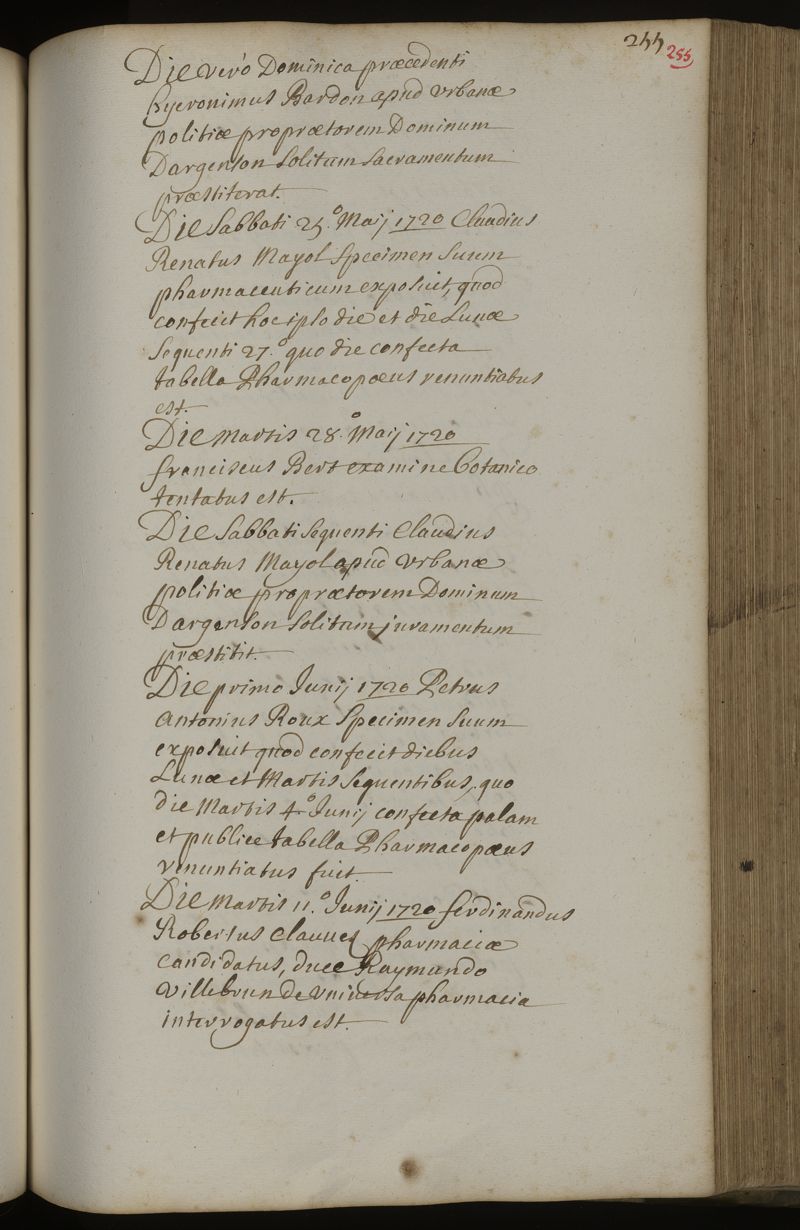 255 255
Die verò Dominica præcedenti
hyeronimus Bardon apud Vrbanæ
politiæ proprætorem Dominum
Dargenson solitum sacramentum
præstiterat.
Die Sabbati 25.° Maij 1720 Claudius
Renatus Mayol specimen suum
pharmaceuticum exposuit, quod
confecit hoc ipso die et die Lunæ
sequenti 27.° quo die confecta
tabella Pharmacopœus renuntiatus
est.
Die Martis 28.° Maij 1720
franciscus Bert examine Botanico
tentatus est.
Die Sabbati sequenti Claudius
Renatus Mayol apud Vrbanæ
politiæ proprætorem Dominum
Dargenson solitum juramentum
præstitit.
Die primo Junij 1720 Petrus
Antonius Roux Specimen suum
exposuit quod confecit diebus
Lunæ et Martis sequentibus, quo
die Martis 4.° Junij confecta palam
et publice tabella Pharmacopœus
renuntiatus fuit.
Die Martis 11.° Junij 1720 ferdinandus
Robertus Clauuel pharmaciæ
Candidatus, duce Raymundo
Villebrun de Vniversa pharmacia
interrogatus est.